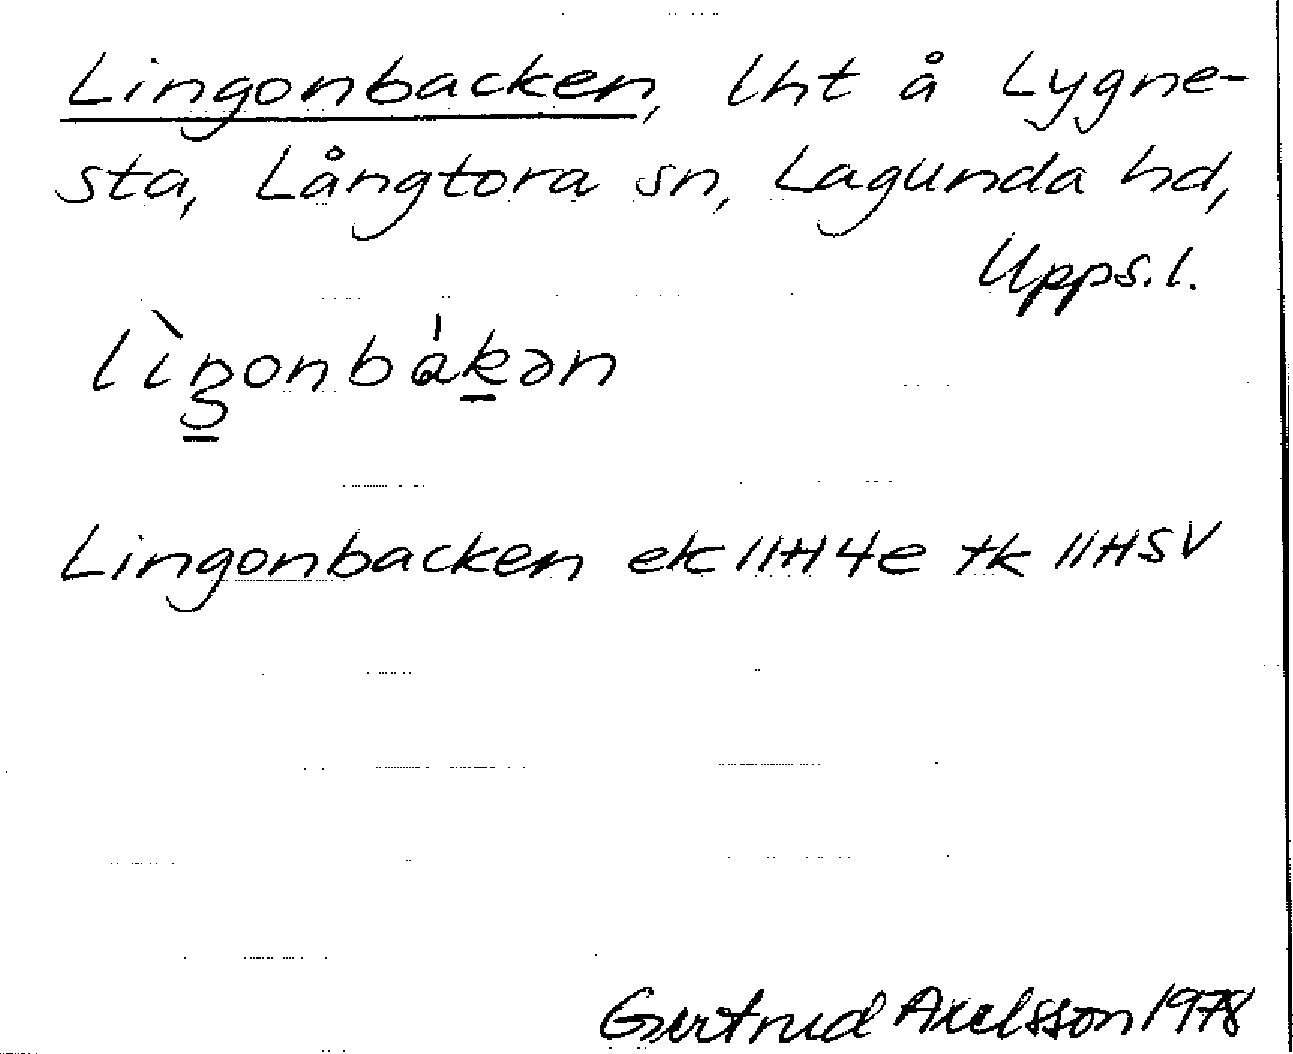 Lingonbacken, lht å Lygne-
sta, Långtora sn, Lagunda hd,
Upps.l.
lìŋonbákən
Lingonbacken ek 11H4e tk 11HSV
Gertrud Axelsson 1978